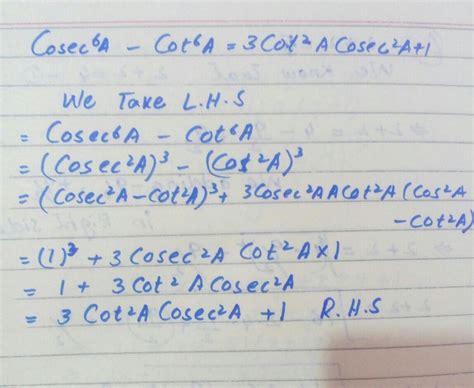 Cosec⁶A - Cot⁶A = 3Cot²A Cosec²A+1
We Take L.H.S
= Cosec⁶A - Cot⁶A
= (Cosec²A)³ - (Cos²A)³
= (Cosec²A - Cot²A)³ + 3Cosec²AACot²A (Cos²A
- Cot²A)
= (1)³ + 3 Cosec²A Cot²A x 1
= 1 + 3 Cot²A Cosec²A
= 3 Cot²A Cosec²A + 1 R.H.S